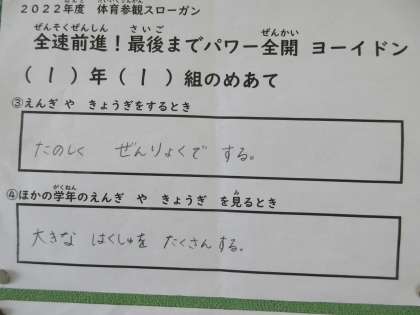 2022年度 体育参観スローガン
全速前進！最後までパワー全開 ヨーイドン
(1)年(1)組のめあて
③えんぎ や きょうぎをするとき
たのしく ぜんりょくで する。
④ほかの学年のえんぎ や きょうぎ を見るとき
大きな はくしゅを たくさんする。